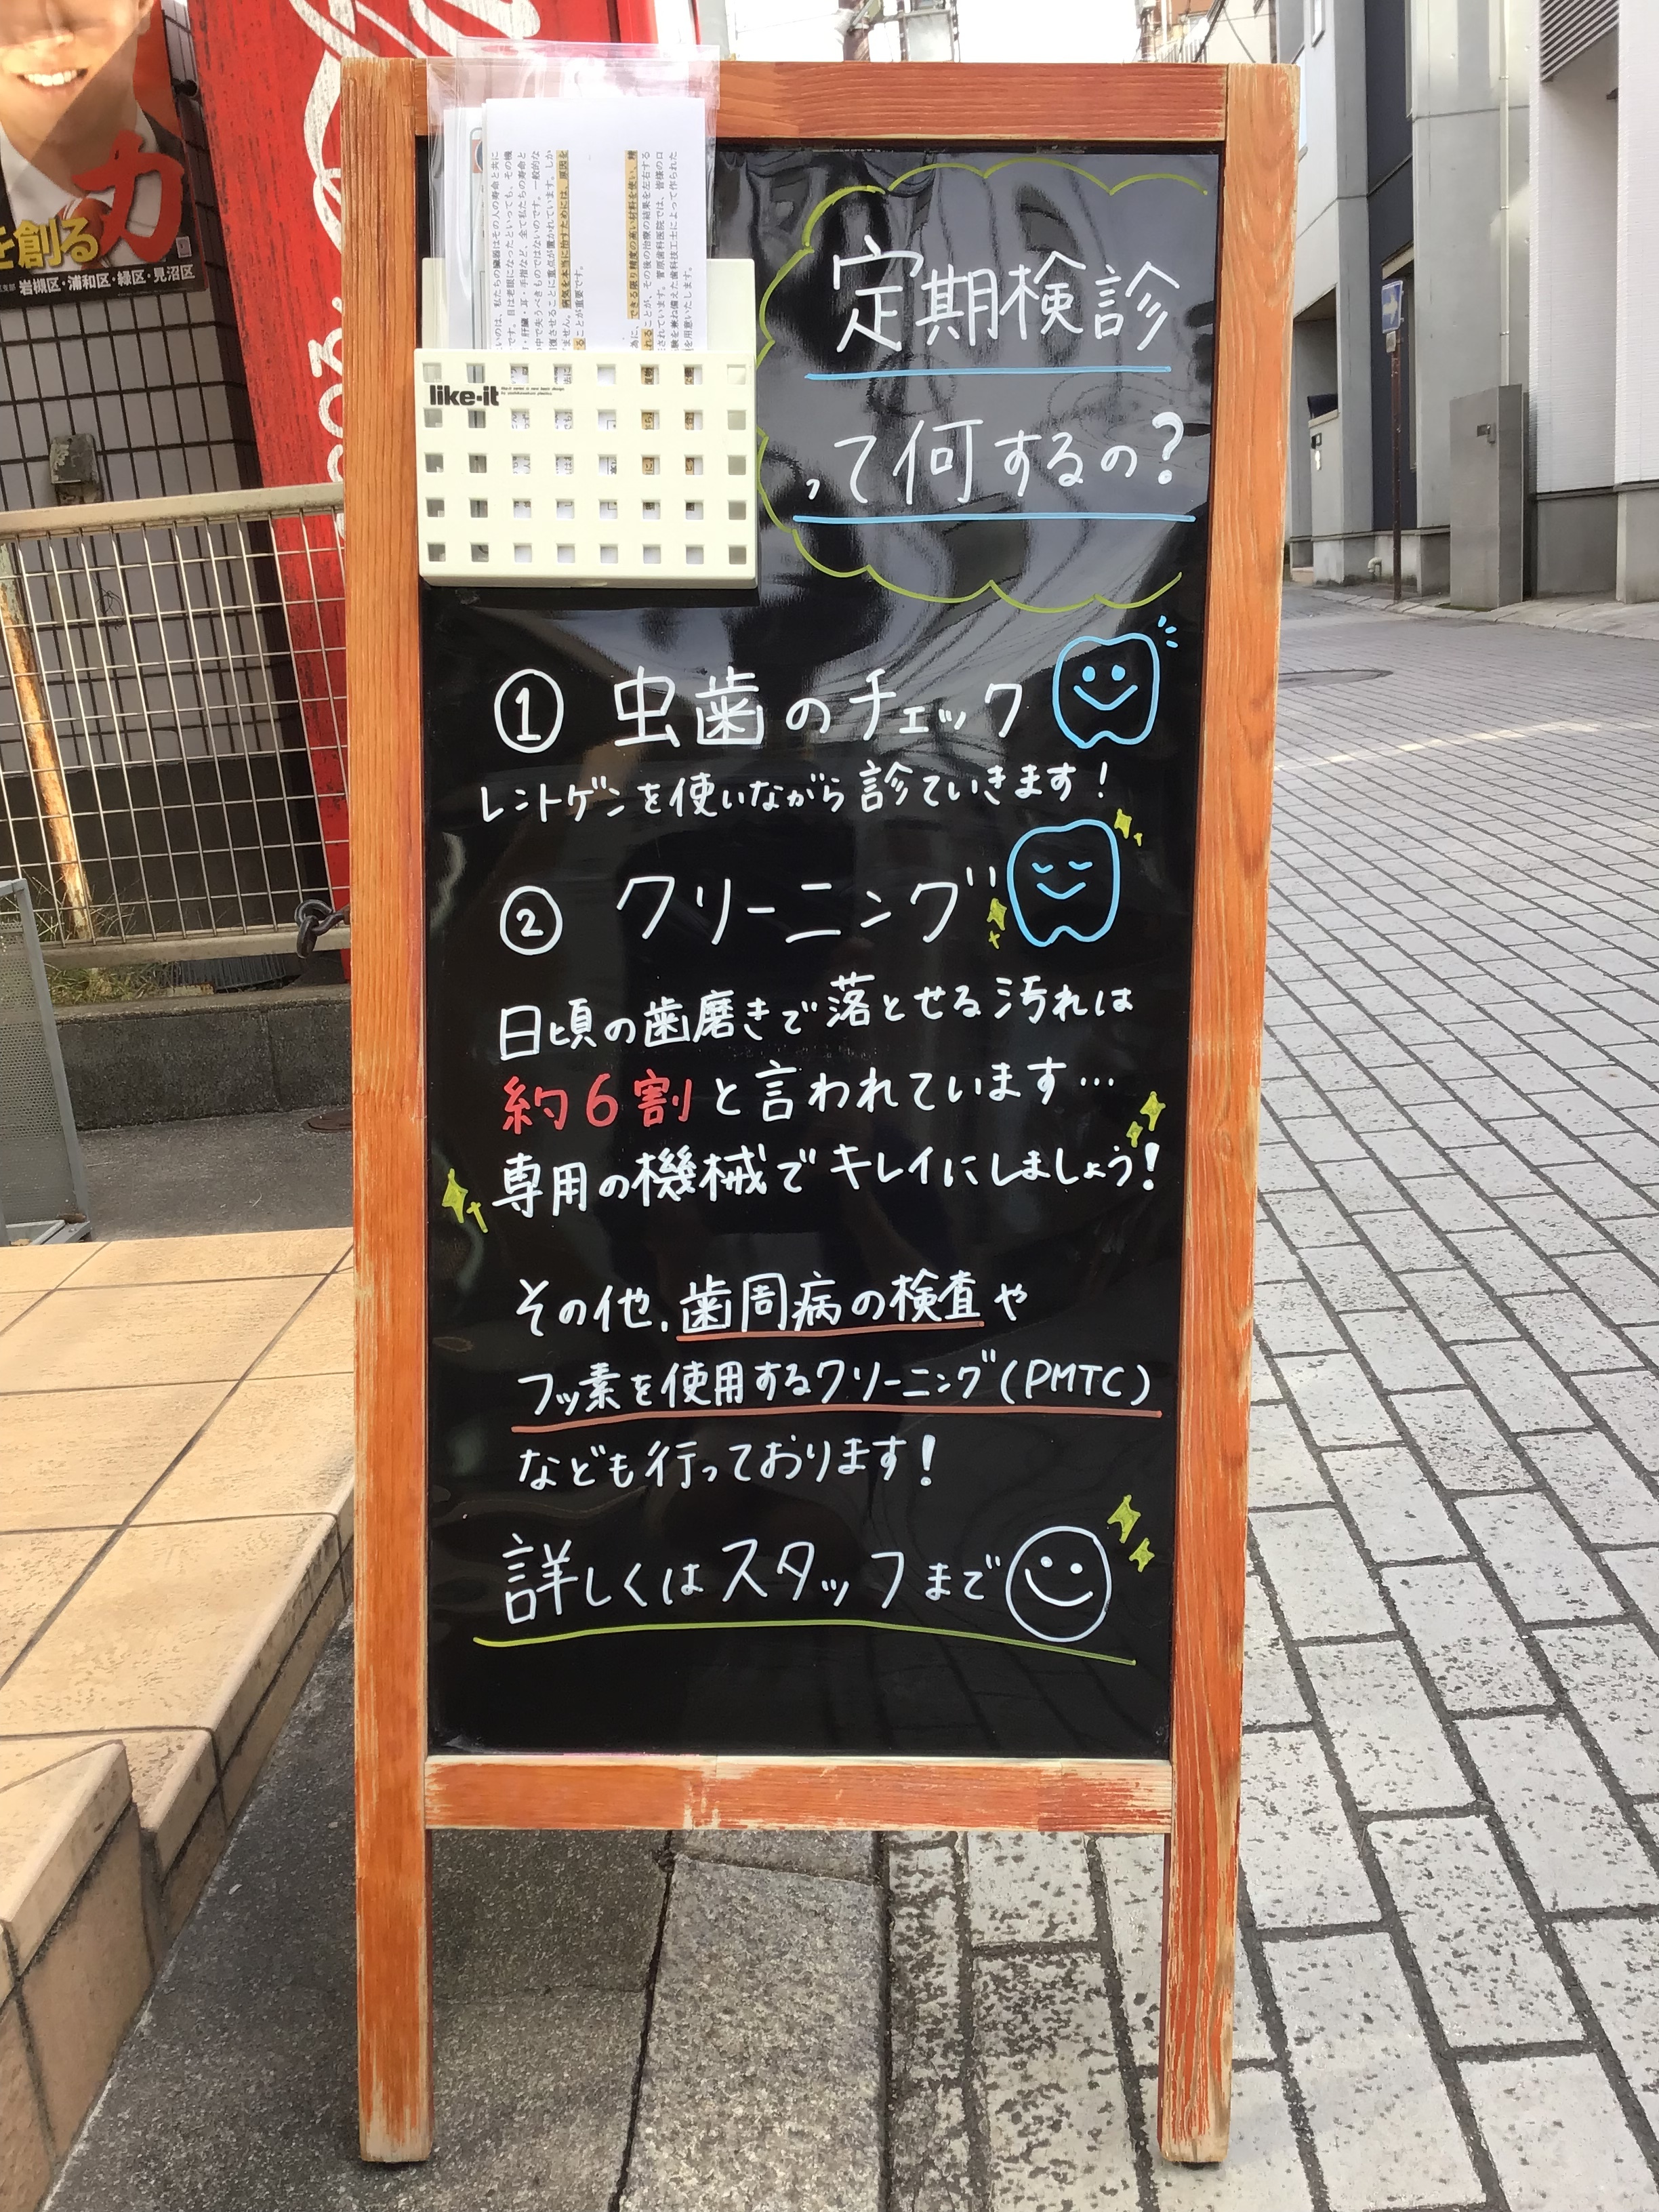 力
を創る
岩槻区・浦和区・緑区・見沼区
like-it
定期検診
って何するの?
① 虫歯のチェック
レントゲンを使いながら診ていきます!
② クリーニング
日頃の歯磨きで落とせる汚れは
約6割と言われています…
専用の機械でキレイにしましょう!
その他、歯周病の検査や
フッ素を使用するクリーニング(PMTC)
なども行っております!
詳しくはスタッフまで